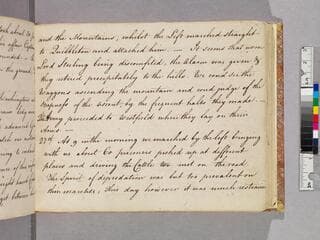 and the Mountains, whilst the Left marched straight
to Quibbletown and attacked him. — It seems that upon
Lord Sterling being discomfited, the alarm was given, &
they retired precipitately to the hills. We could see the
Waggons ascending the mountain and could judge of the
steepness of the ascent, by the frequent halts they made.
The Army proceeded to Westfield when they lay on their
Arms. —
27th. At 9 in the morning we marched by the left bringing
with us about 60 prisoners picked up at different
places and driving the Cattle we met on the road.
The Spirit of depredation was but too prevalent on
these marches; this day however it was much restrain